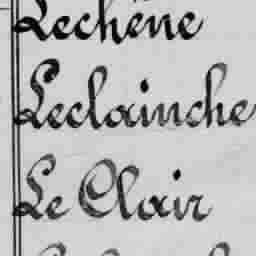 Lechêne
Leclainche
Le Clair